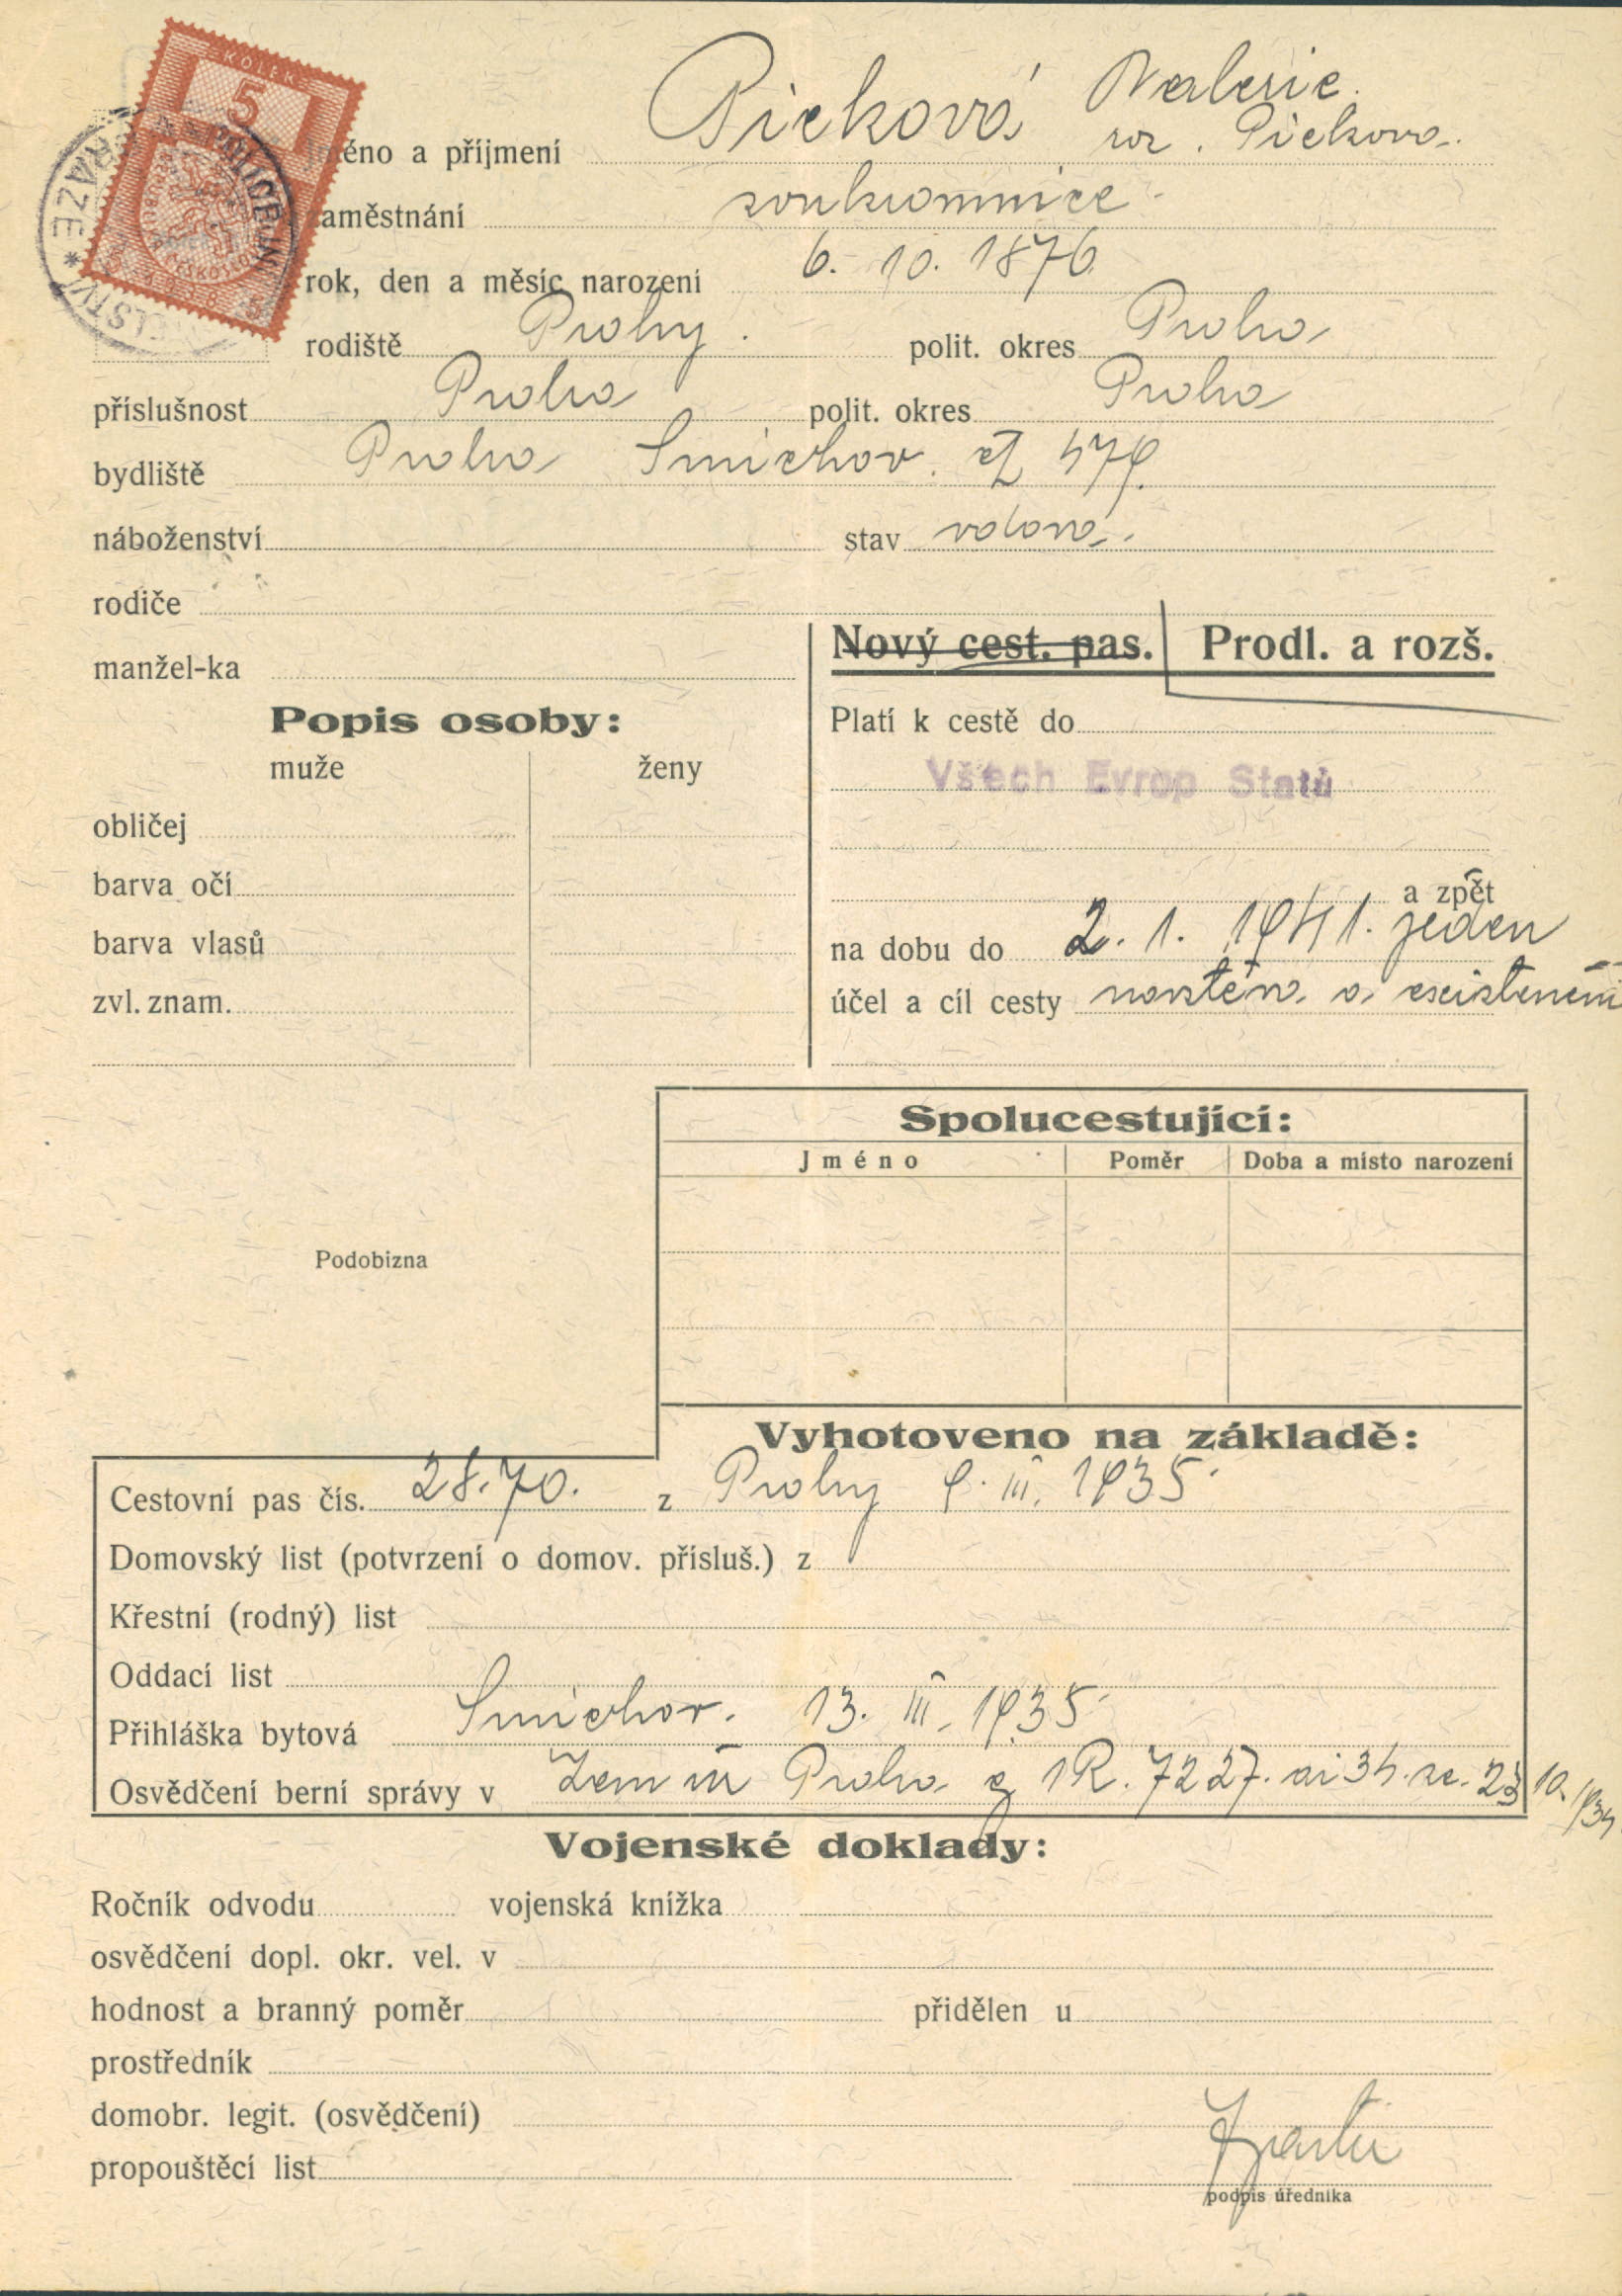 KOLEK
5
POLICEJNÍ
PRAZE *
Valerie.
Jméno a příjmení Picková roz. Picková.
zaměstnání soukromnice
rok, den a měsíc narození 6. 10. 1876
rodiště Prahy. polit. okres Praha
příslušnost Praha polit. okres Praha
bydliště Praha Smíchov. čp 479.
náboženství stav vdova
rodiče
Nový cest. pas. Prodl. a rozš.
manžel-ka
Popis osoby:
Platí k cestě do
muže ženy
Všech Evrop Států
obličej
barva očí
a zpět
barva vlasů
na dobu do 2. 1. 1941. jeden
zvl. znam.
účel a cíl cesty
Spolucestující:
Jméno Poměr Doba a místo narození
Podobizna
Vyhotoveno na základě:
Cestovní pas čís. 28.70. z Prahy 9. III. 1935
Domovský list (potvrzení o domov. přísluš.) z
Křestní (rodný) list
Oddací list
Přihláška bytová Smíchov. 13. III. 1935
Osvědčení berní správy v Praha 1R. 7227. 34. 23 10. 1934
Vojenské doklady:
Ročník odvodu vojenská knížka
osvědčení dopl. okr. vel. v
hodnost a branný poměr přidělen u
prostředník
domobr. legit. (osvědčení)
propouštěcí list
podpis úředníka